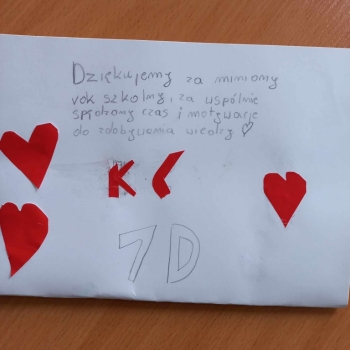 Dziękujemy za miniony
rok szkolny, za wspólnie
spędzony czas i motywację
do zdobywania wiedzy
K C
7D